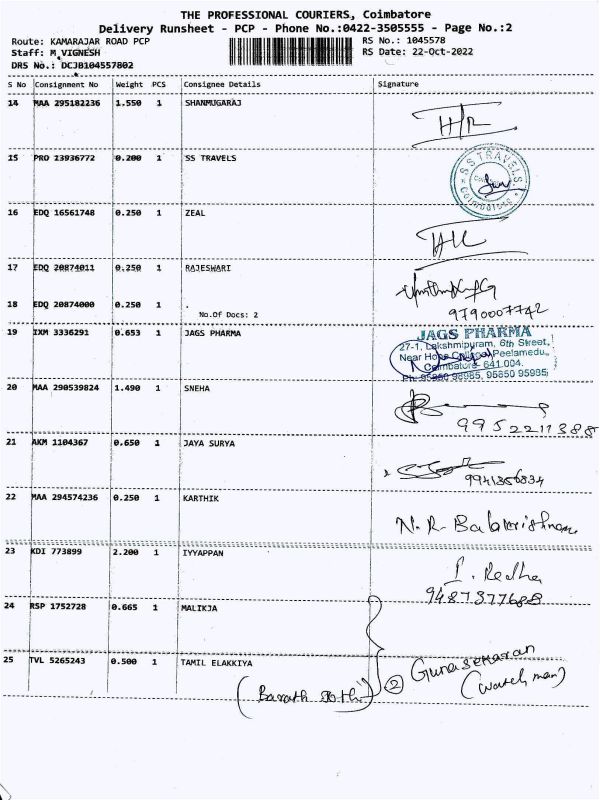 THE PROFESSIONAL COURIERS, Coimbatore
Delivery Runsheet - PCP - Phone No.:0422-3505555 - Page No.:2
Route: KAMARAJAR ROAD PCP
RS No.: 1045578
Staff: M VIGNESH
RS Date: 22-Oct-2022
DRS No.: DCJB104557802
S No Consignment No Weight PCS Consignee Details Signature
14 MAA 295182236 1.550 1 SHANMUGARAJ
15 PRO 13936772 0.200 1 SS TRAVELS
S S TRAVELS
COIMBATORE
16 EDQ 16561748 0.250 1 ZEAL
17 EDQ 20874011 0.250 1 RAJESWARI
18 EDQ 20874000 0.250 1 .
No.Of Docs: 2
9790007742
19 IXM 3336291 0.653 1 JAGS PHARMA
JAGS PHARMA
27-1, Lakshmipuram, 6th Street,
Near Hope College, Peelamedu,
Coimbatore- 641 004.
Ph: 95850 98985, 95850 95985
20 MAA 290539824 1.490 1 SNEHA
9952211388
21 AKM 1104367 0.650 1 JAYA SURYA
9941356834
22 MAA 294574236 0.250 1 KARTHIK
N. R. Balakrishnan
23 KDI 773899 2.200 1 IYYAPPAN
I. Radha
9487377688
24 RSP 1752728 0.665 1 MALIKJA
25 TVL 5265243 0.500 1 TAMIL ELAKKIYA
2 Gunasekaran
(watch man)
(Barath